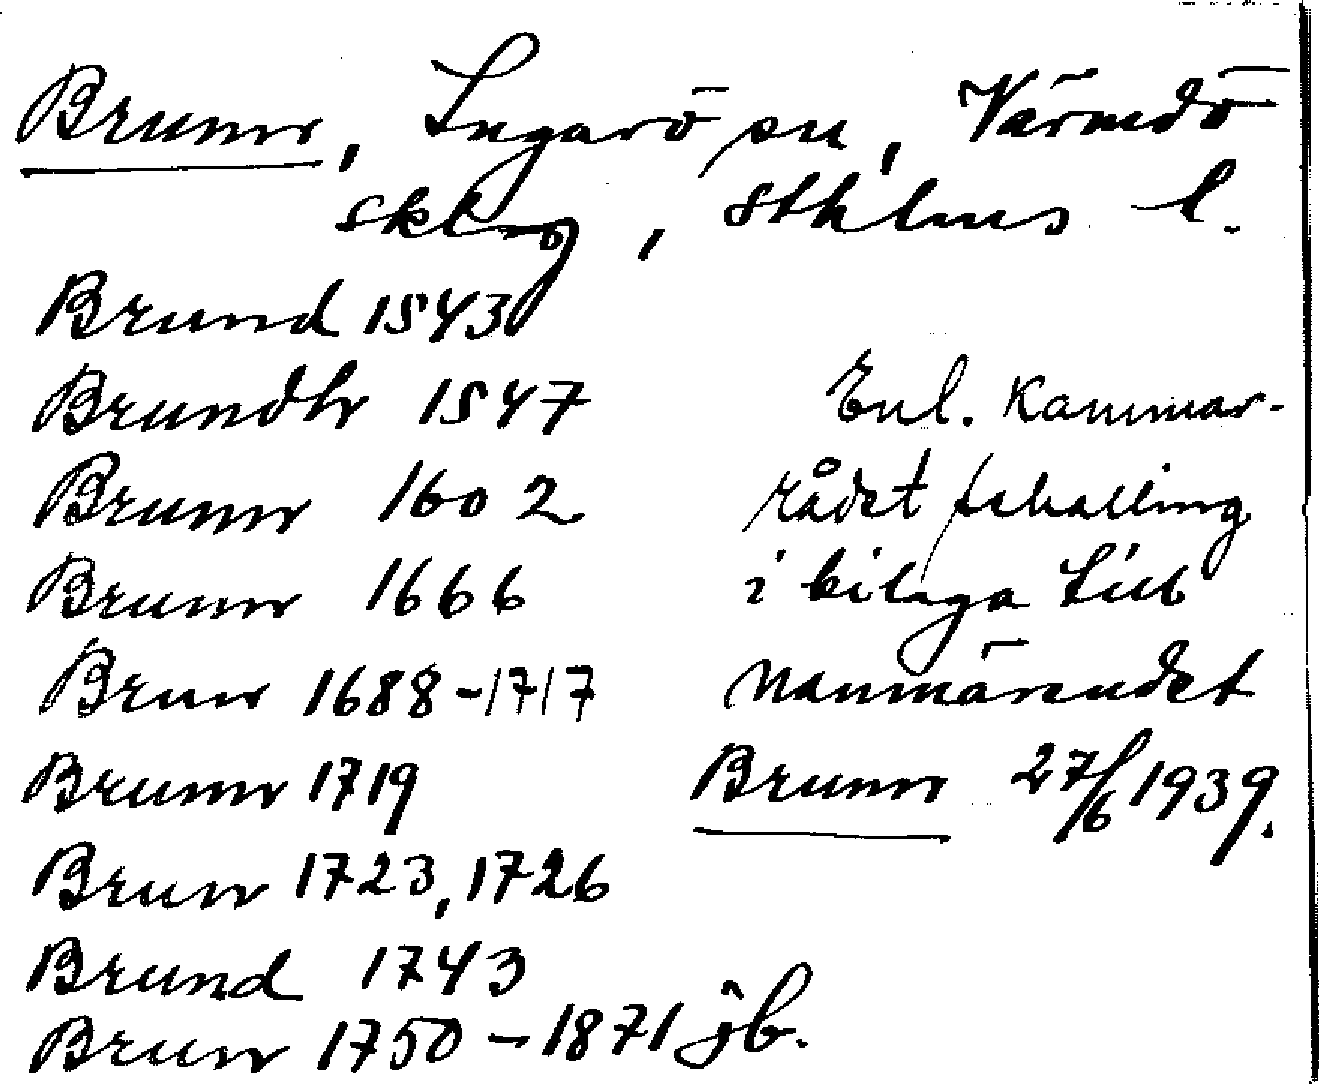 Brunn, Ingarö sn, Värmdö
sklng, Sthlms l.
Brund 1543
Brundh 1547
Brunn 1602
Brunn 1666
Brun 1688-1717
Brunn 1719
Brun 1723, 1726
Brund 1743
Brun 1750 - 1871 jb.
Enl. Kammar-
rådet Schalling
i bilaga till
namnärendet
Brunn 27/6 1939.